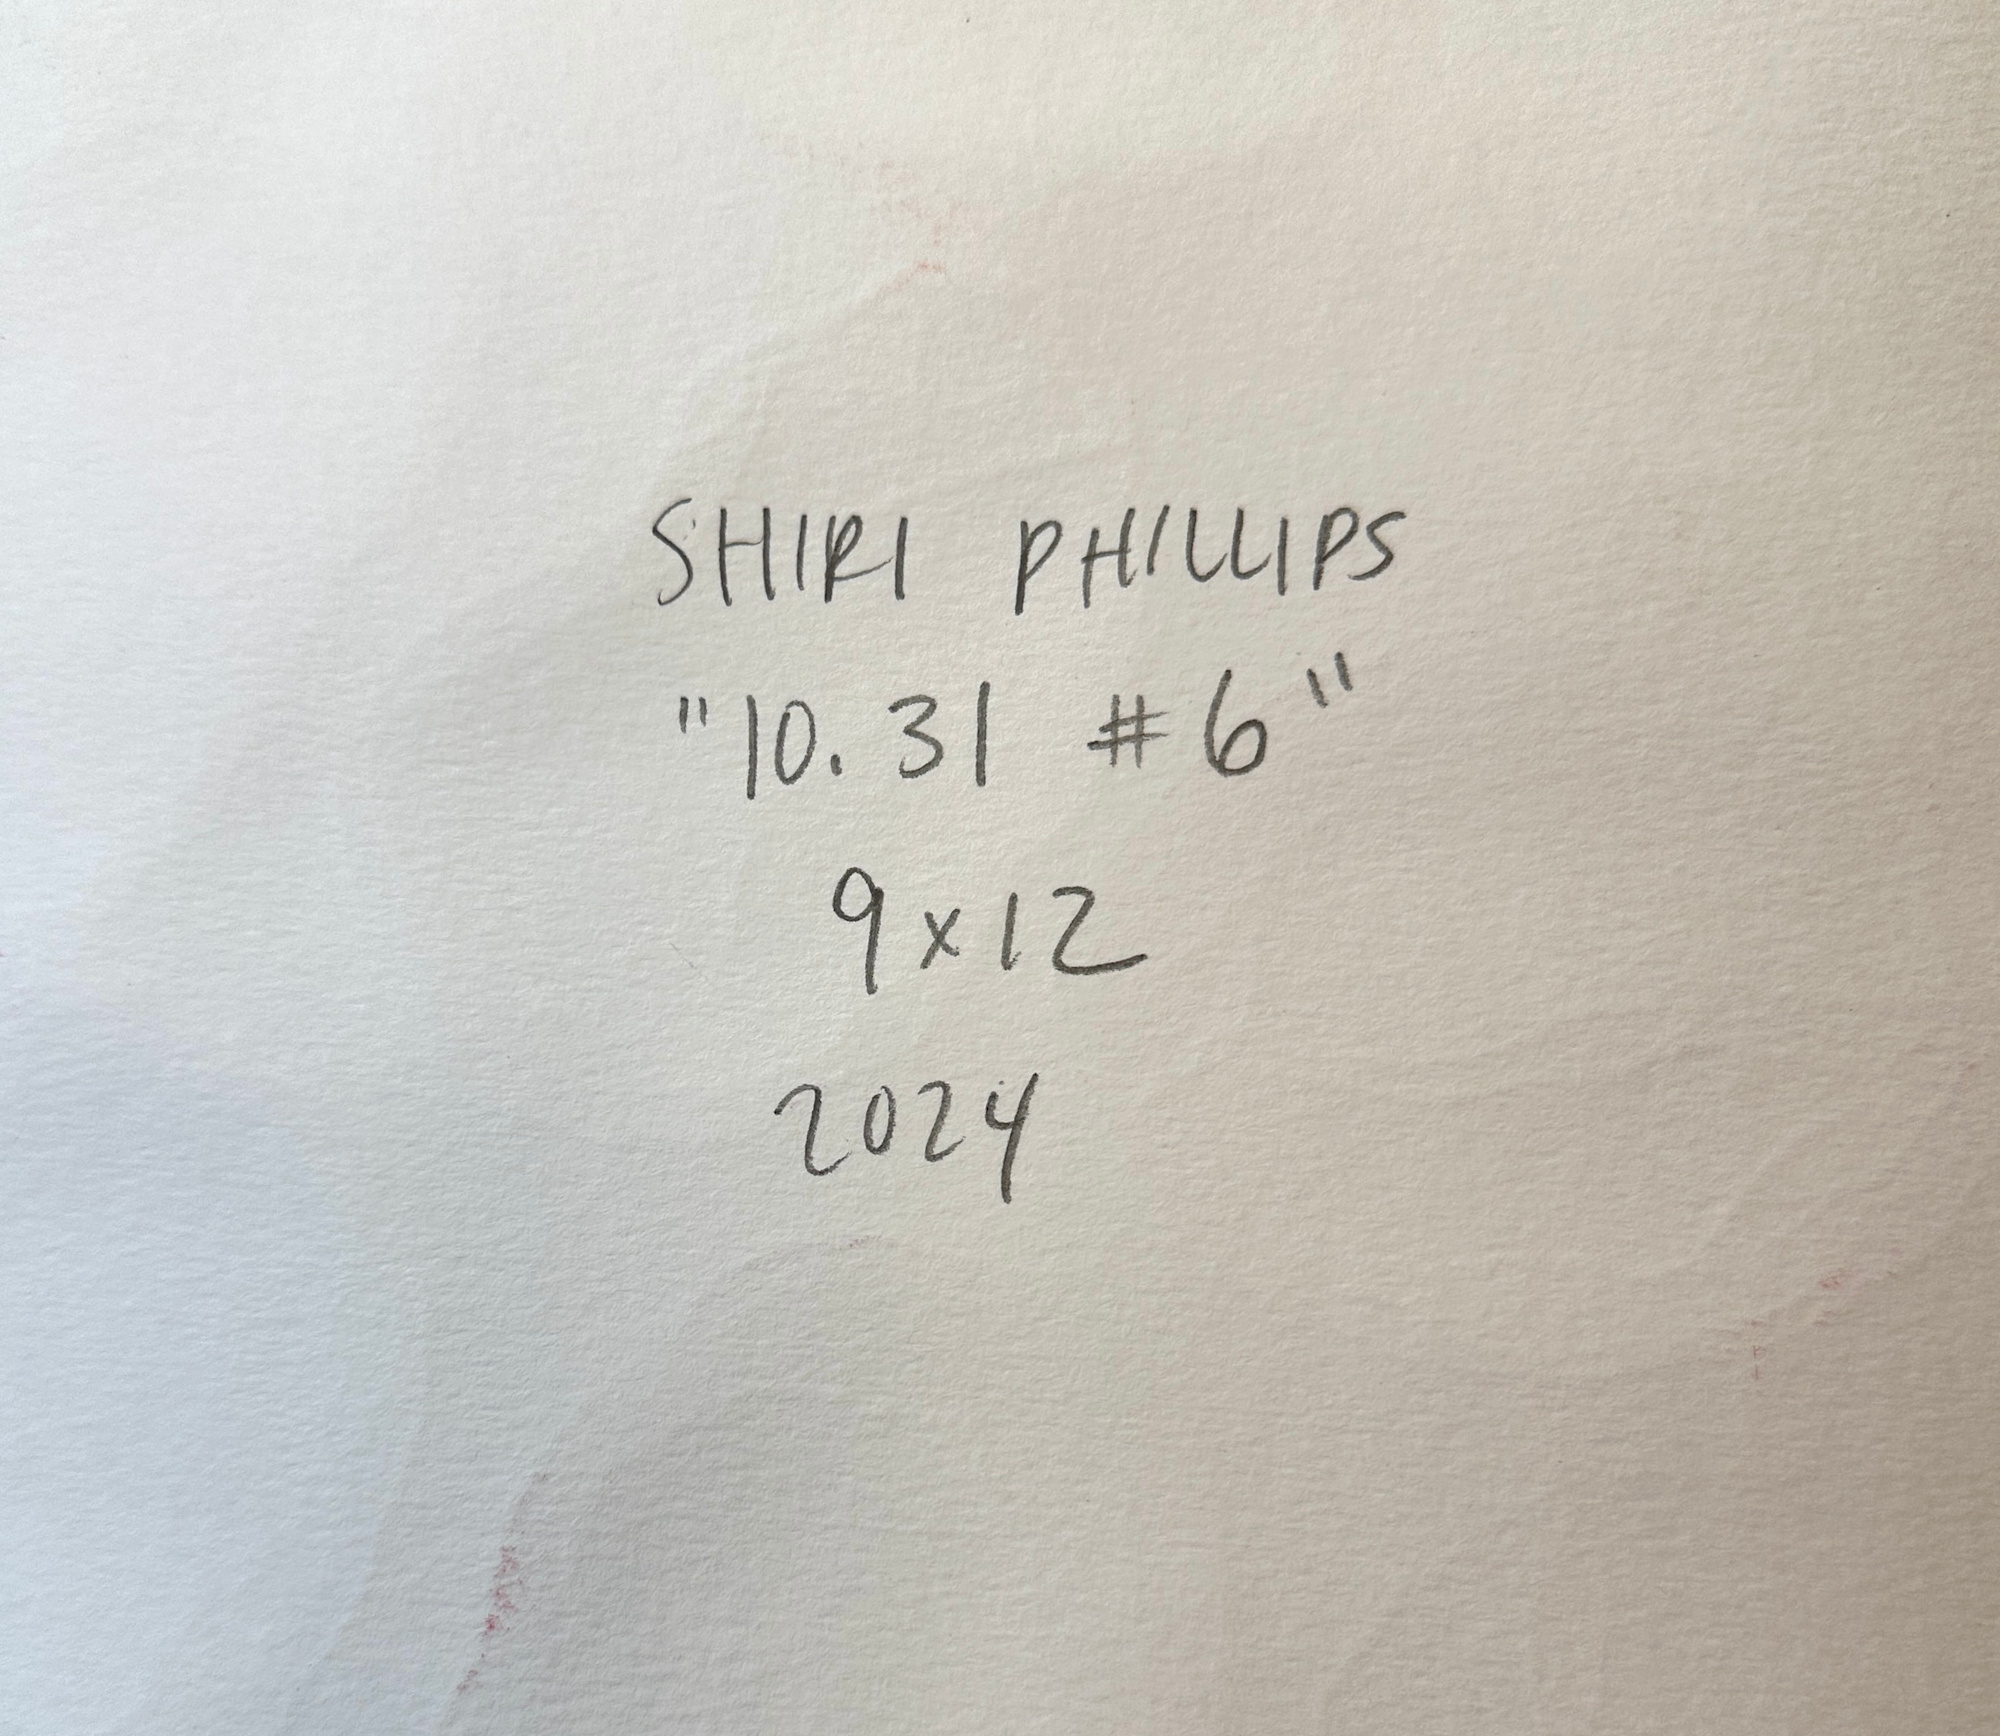 SHIRI PHILLIPS
"10.31 #6"
9x12
2024